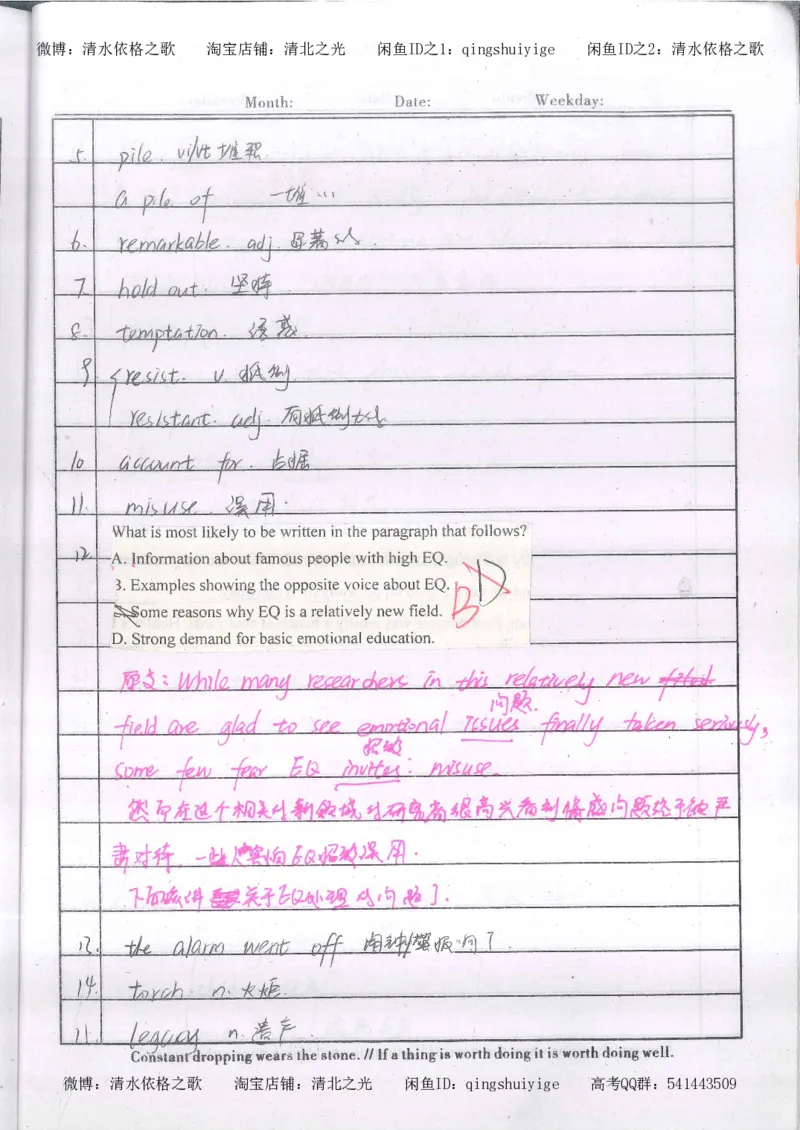 微博：清水依格之歌 淘宝店铺：清北之光 闲鱼ID之1：qingshuiyige 闲鱼ID之2：清水依格之歌
Month: Date: Weekday:
5. pile. vi/vt 堆积
a pile of 一堆…
6. remarkable. adj. 显著的.
7. hold out. 坚持
8. temptation. 诱惑.
9. resist. v. 抵制.
resistant. adj. 有抵制力的
10 account for. 占据
11. misuse. 误用.
What is most likely to be written in the paragraph that follows?
12 A. Information about famous people with high EQ.
B. Examples showing the opposite voice about EQ.
Some reasons why EQ is a relatively new field.
D. Strong demand for basic emotional education.
B D
原文: While many researchers in this relatively new
问题.
field are glad to see emotional issues finally taken seriously,
招致
some few fear EQ invites misuse.
然而在这个相关的新领域的研究者很高兴看到情感问题终于被严
肃对待, 一些人害怕EQ招致误用.
下面该讲关于EQ处理的问题了.
13. the alarm went off 闹钟/警报响了.
14. torch. n. 火炬.
15. legacy n. 遗产.
Constant dropping wears the stone. // If a thing is worth doing it is worth doing well.
微博：清水依格之歌 淘宝店铺：清北之光 闲鱼ID：qingshuiyige 高考QQ群：541443509